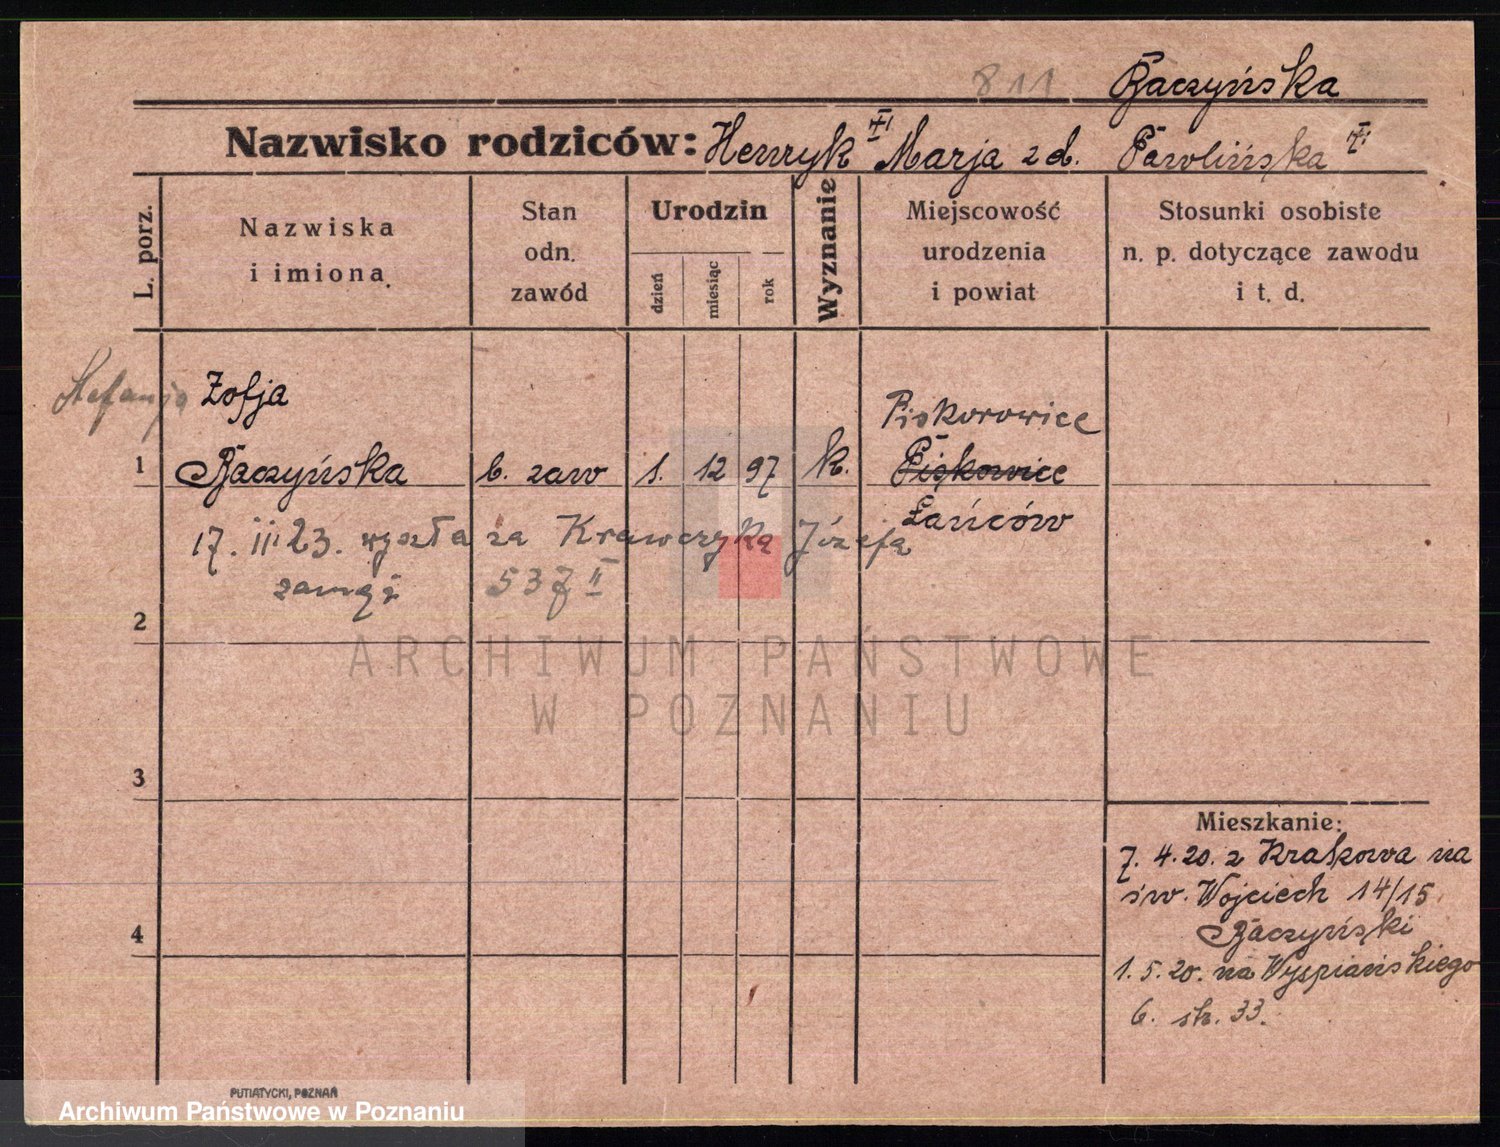 811 Raczyńska
Nazwisko rodziców: Henryk Marja z d. Pawlińska
L. porz.
Nazwiska
i imiona.
Stan
odn.
zawód
Urodzin
dzień
miesiąc
rok
Wyznanie
Miejscowość
urodzenia
i powiat
Stosunki osobiste
n. p. dotyczące zawodu
i t. d.
Stefanja Zofja
Piskorowice
1 Raczyńska b. zaw 1. 12 97 k. Piskowice
Łańców
17. III 23. wyszła za Krawczyka Józefa
zamąż 537 II
2
3
4
Mieszkanie:
7. 4. 20. z Krakowa na
św. Wojciech 14/15
Raczyński
1. 5. 20. na Wyspiańskiego
6. st. 33.
ARCHIWUM PAŃSTWOWE
W POZNANIU
PUTIATYCKI, POZNAŃ
Archiwum Państwowe w Poznaniu